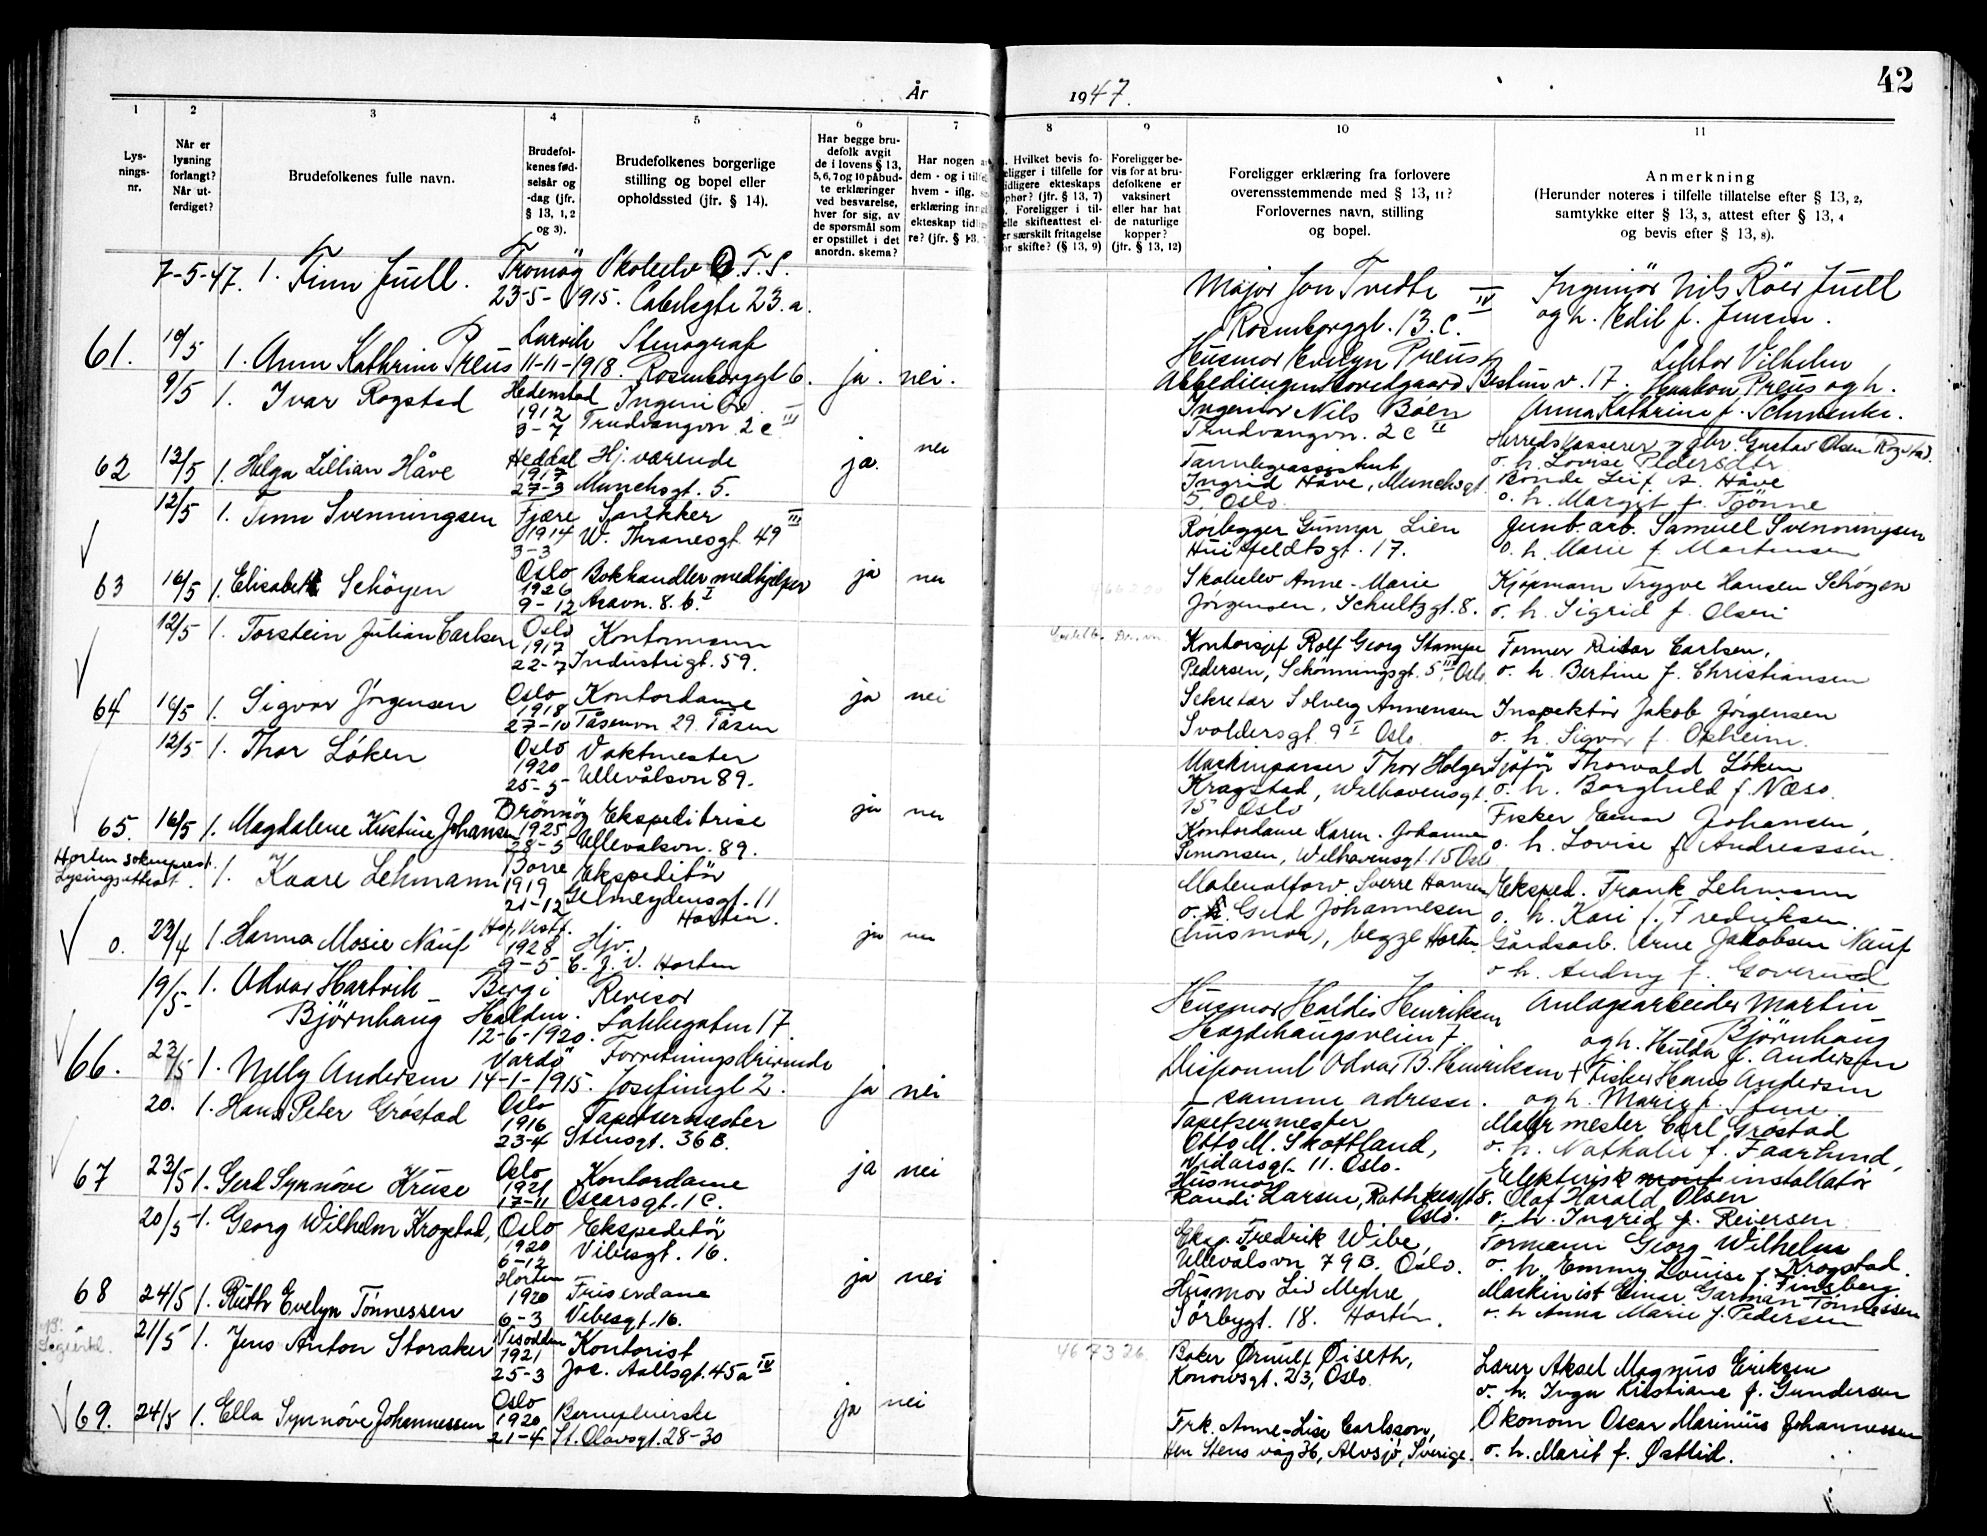 42
År
1947.
1 2 3 4 5 6 7 8 9 10 11
Lys-
nings-
nr.
Når er
lysning
forlangt?
Når ut-
ferdiget?
Brudefolkenes fulle navn.
Brudefol-
kenes fød-
selsår og
-dag (jfr.
§ 13, 1, 2
og 3).
Brudefolkenes borgerlige
stilling og bopel eller
opholdssted (jfr. § 14).
Har begge bru-
defolk avgit
de i lovens § 13,
5, 6, 7 og 10 påbud-
te erklæringer
ved besvarelse,
hver for sig, av
de spørsmål som
er opstillet i det
anordn. skema?
Har nogen
dem - og i
hvem - iflg.
erklæring
ekteskap
re? (jfr. § 13,
Hvilket bevis fo-
religger i tilfelle for
tidligere ekteskaps
ophør? (jfr. § 13, 7)
Foreligger i til-
felle skifteattest el-
ler særskilt fritagelse
for skifte? (§ 13, 9)
Foreligger be-
vis for at bru-
defolkene er
vaksinert
eller har hat
de naturlige
kopper?
(jfr. § 13, 12)
Foreligger erklæring fra forlovere
overensstemmende med § 13, 11?
Forlovernes navn, stilling
og bopel.
Anmerkning
(Herunder noteres i tilfelle tillatelse efter § 13, 2,
samtykke efter § 13, 3, attest efter § 13, 4
og bevis efter § 13, 8).
7-5-47. 1. Finn Juell.
Tromøy
23-5-1915.
Major Jon Tvedte IV
Rosenborggt. 13.C.
Ingeniör Nils Röer Juell
og h. Edil f. Jensen.
61. 10/5 1. Anna Kathrine Preus
Larvik
11-11-1918.
Stenograf
Rosenborggt 6. ja. nei.
Husmor Evelyn Preus
Bestum v. 17.
Lektor Vilhelm
Haakon Preus og h.
Anna Kathrine f. Schwenke.
9/5 1. Ivar Rogstad
Hedenstad
1912
3-7
Ingeniör
Trudvangvn. 2 c III
Ingeniör Nils Böen
Trudvangvn. 2 c II
Herredskasserer og gbr. Gustav Olsen Rogstad.
o. h. Lovise Pedersdtr
62 13/5 1. Helga Lillian Håve
Heddal
1917
27-3
Hj. værende
Munchsgt. 5.
ja. nei
Tannlegeassistent
Ingrid Håve, Munchsgt
5. Oslo
Bonde Leif A. Håve
o. h. Margit f. Tjønne
12/5 1. Finn Svenningsen
Fjære
1914
3-3
Snekker
W. Thranesgt. 49 III
Rörlegger Gunnar Lien
Huitfeldtsgt. 17.
Jernb. arb. Samuel Svenningsen
o. h. Marie f. Martensen
63 16/5 1. Elisabeth Schöyen
Oslo
1926
9-12
Bokhandlermedhjelper
Aasvn. 8. b. I
ja nei
Anne-Marie
Jörgensen, Schultzgt. 8.
Kjøpmann Trygve Hansen Schöyen
o. h. Sigrid f. Olsen
12/5 1. Torstein Julian Carlsen
Oslo
1917
22-7
Kontormann
Industrigt. 59.
Kontorsjef Rolf Georg Stampe
Pedersen, Schönningsgt. 5 III Oslo
Former Reidar Carlsen,
o. h. Bertine f. Christiansen
64 16/5 1. Sigvor Jörgensen
Oslo
1918
27-10
Kontordame
Tåsenvn 29. Tåsen
ja nei
Sekretær Solveig Annensen
Svoldersgt 9 I Oslo.
Inspektör Jakob Jörgensen
o. h. Sigvor f. Opheim.
12/5 1. Thor Löken
Oslo
1920
25-5
Vaktmester
Ullevålsvn 89.
Maskinpasser Thor Holger
Kragstad, Welhavensgt.
15 Oslo
Sjåför Thorvald Löken
o. h. Borghild f. Næss.
65. 16/5 1. Magdalene Kristine Johansen
Brönnöy
1925
28-5
Ekspeditrise
Ullevålsvn. 89.
ja nei
Kontordame Karen-Johanne
Simonsen, Welhavensgt. 15 Oslo
Fisker Einar Johansen,
o. h. Lovise f. Andreassen.
Horten sokneprest.
Lysingsattest.
1. Kaare Lehmann
Borre
1919
21-12
Ekspeditör
Gelmeydensgt. 11
Horten.
Materialforv. Sverre Hansen
o. h. Gerd Johannesen
(husmor), begge Horten.
Eksped. Frank Lehmann
o. h. Kari f. Fredriksen.
0. 23/4 1. Hanna Mosie Nauf
1928
9-5
Hjv.
Horten
ja nei
Gårdsarb. Arne Jakobsen Nauf
o. h. Audny f. Goverud
19/5- 1. Odvar Hartvik
Björnhaug
Berg i
Halden.
12-6-1920.
Revisor
Lakkegaten 17.
Husmor Haldis Henriksen
Hegdehaugsveien 7.
Anlegsarbeider Martin
Björnhaug
og h. Hulda f. Andersen
66. 22/5 1. Nelly Andersen
Vardö
14-1-1915.
Forretningsdrivende
Josefinegt 2.
ja nei
Disponent Odvar B. Henriksen
samme adresse.
† Fisker Hans Andersen
og h. Marie f. Stene
20. 1. Hans Peter Gröstad
Oslo
1916
23-4
Tapetsermester
Stensgt. 36B.
Tapetsermester
Otto M. Skottland,
Nidarosgt. 11. Oslo.
Malermester Carl Gröstad
o. h. Nathalie f. Faarlund,
67 23/5 1. Gerd Synnöve Kruse
Oslo
1921
17-11
Kontordame
Oscarsgt. 1c.
ja nei
Husmor
Randi Larsen, Rathkesgt 8.
Oslo.
Elektrisk installatör
Olaf Harald Olsen
o. h. Ingrid f. Reiersen
20/5- 1. Georg Wilhelm Krogstad,
Oslo
1920
6-12
Ekspeditör
Vibesgt. 16.
Eksp. Fredrik Wibe,
Ullevålsvn 79B. Oslo.
Formann Georg Wilhelm
Krogstad.
o. h. Emmy Louise f. Finsberg.
68 24/5 1. Ruth Evelyn Tönnessen
Horten
1920
6-3
Friserdame
Vibesgt. 16.
ja nei
Husmor Liv Mehre,
Sörbygt. 18. Horten.
Maskinist Einar Garman Tönnessen
o. h Anna Marie f. Pedersen
21/5 1. Jens Anton Storaker
1921
25-3
Kontorist
Jac. Aallsgt. 45a IV
467326
Baker Ørnulf Øiseth,
Konowsgt. 23, Oslo.
Lærer Aksel Magnus Eriksen
o. h. Inga Kristiane f. Gundersen
69. 24/5 1. Ella Synnöve Johannessen
Oslo
1920
21-4
Barnepleierske
St. Olavsgt. 28-30
ja nei
Frk. Anne-Lise Carlsson,
Stens väg 36, Alvsjö, Sverige.
Økonom Oscar Marinius Johannessen
o. h. Marit f. Østlid.